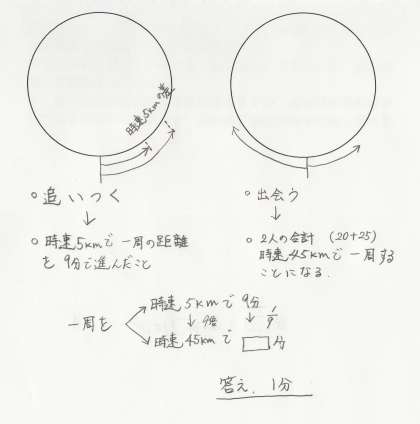 時速5kmの差
○ 追いつく
↓
○ 時速5kmで一周の距離
を 9分で進んだこと
○ 出会う
↓
○ 2人の合計 (20+25)
時速45kmで一周する
ことになる.
一周を
時速 5kmで 9分
↓9倍 ↓1/9
時速 45kmで □分
答え. 1分